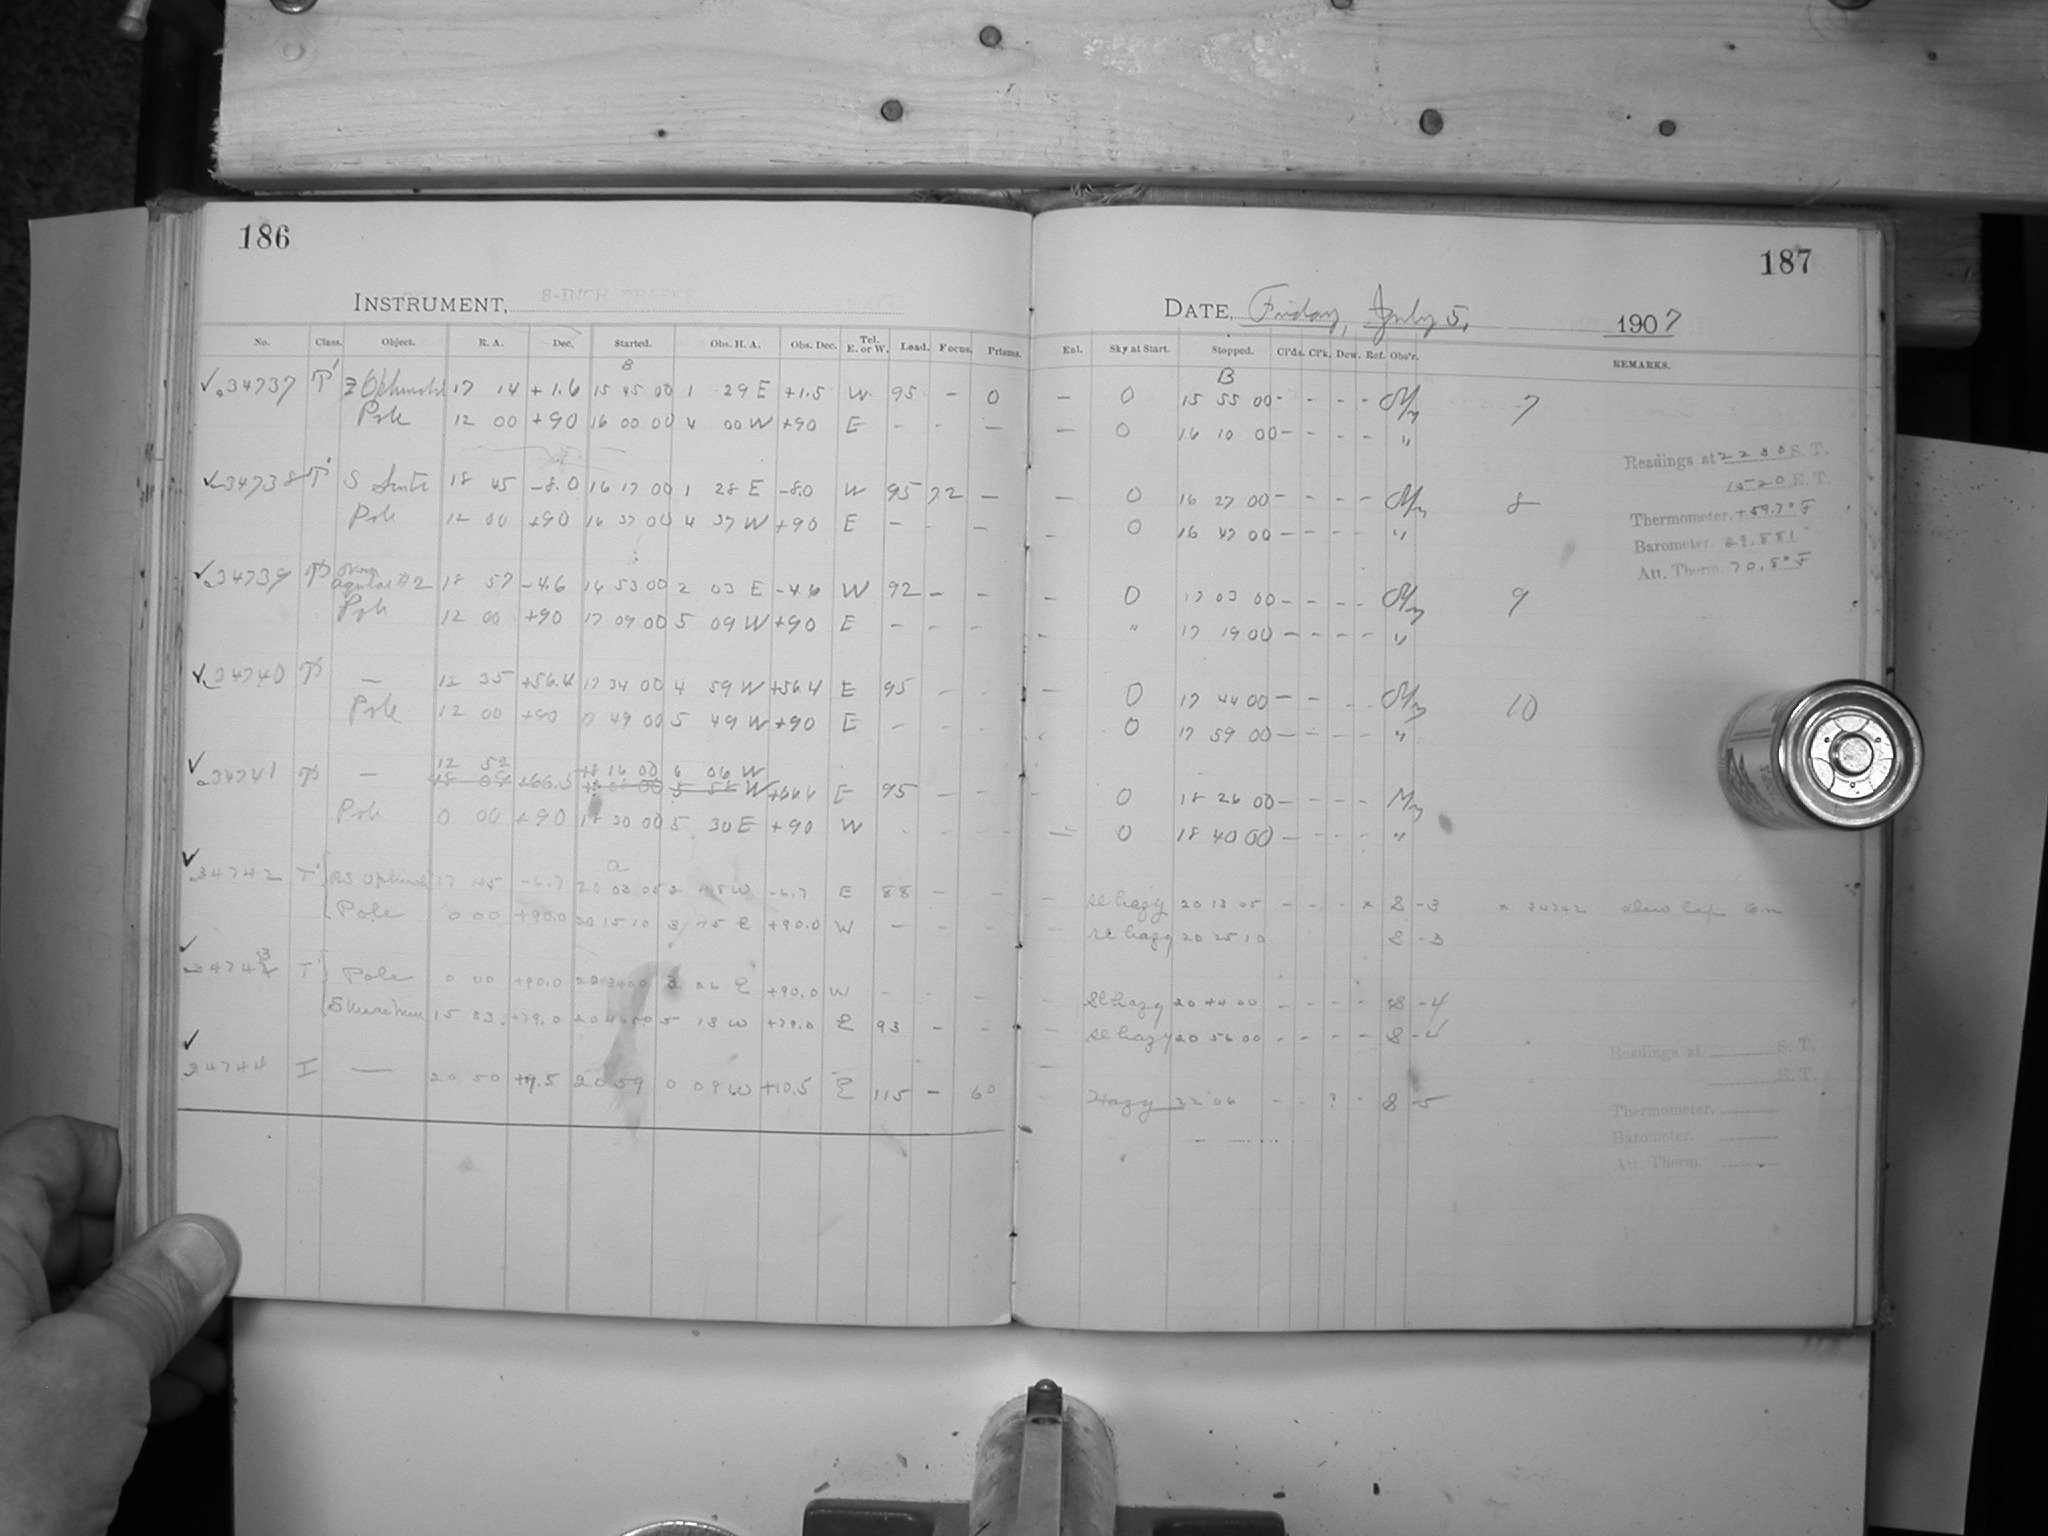 186
187
INSTRUMENT,
DATE, Friday, July 5, 1907
No. Class. Object. R. A. Dec. Started. Obs. H. A. Obs. Dec. Tel. E. or W. Load. Focus. Prisms. Enl. Sky at Start. Stopped. Cl'ds. Cl'k. Dew. Ref. Obs'r. REMARKS.
B B
34737 T' 17 14 +1.6 15 45 00 1 29 E +1.5 W 95 - 0 - 0 15 55 00 - - - - 7
Pole 12 00 +90 16 00 00 4 00 W +90 E - - - - 0 16 10 00 - - - - "
Readings at 22 30 S. T.
34738 T' S 18 45 -8.0 16 17 00 1 28 E -8.0 W 95 72 - - 0 16 27 00 - - - - 8
15 20 E. T.
Pole 12 00 +90 16 37 00 4 37 W +90 E - - - - 0 16 47 00 - - - - "
Thermometer. +59.7° F
Barometer. 29.881
Att. Therm. 70.5° F
34739 Nova Aquilae #2 18 57 -4.6 16 53 00 2 03 E -4.6 W 92 - - - 0 17 03 00 - - - - 9
Pole 12 00 +90 17 09 00 5 09 W +90 E - - - - " 17 19 00 - - - - "
34740 - 12 35 +56.4 17 34 00 4 59 W +56.4 E 95 - - - 0 17 44 00 - - - - 10
Pole 12 00 +90 17 49 00 5 49 W +90 E - - - 0 17 59 00 - - - - "
34741 - 12 52 18 16 00 6 06 W E 95 - - - 0 18 26 00 - - - -
Pole 0 00 +90 18 30 00 5 30 E +90 W - 0 18 40 00 - - - - "
34742 T' 17 45 -6.7 20 03 05 2 18 W -6.7 E 88 - - - Sl hazy 20 13 05 - - - x S -3 x 34742 Dew Cap On
Pole 0 00 +90.0 20 15 10 3 45 E +90.0 W - - - - Sl hazy 20 25 10 S -3
34743 T' Pole 0 00 +90.0 20 34 00 3 26 E +90.0 W - - - Sl hazy 20 44 00 - - - - S -4
S Ursae Min 15 33 +79.0 20 46 00 5 13 W +79.0 E 93 - - - Sl hazy 20 56 00 - - - - S -4
34744 I - 20 50 20 59 0 09 W +10.5 E 115 - 60 - Hazy 22 06 - - ? - S -5
Readings at S. T.
E. T.
Thermometer.
Barometer.
Att. Therm.